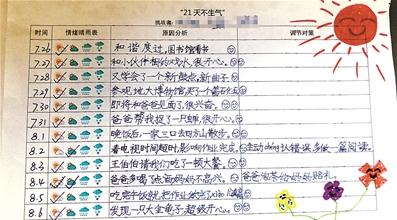 “21 天不生气”
挑战者:
情绪晴雨表 原因分析 调节对策
7.26 和谐度过,图书馆看书
7.27 和小伙伴相约戏水,很开心。
7.28 又学会了一个新颤点,新曲子
7.29 参观地大博物馆买了个萤石
7.30 即将和爸爸见面了,很兴奋。
7.31 爸爸帮我捉了一只蝉,很开心。
8.1 晚饭后,一家三口去南山散步。
8.2 看电视时间超时,影响作业完成, 主动dǎng认错误,多做一篇阅读。
8.3 王伯伯请我们吃了一顿大餐。
8.4 爸爸多喝了酒,妈妈不高兴。 爸爸泡茶给妈妈赔礼。
8.5 吃完午饭就把作业做完了
8.6 发现一只大金龟子,超级开心。